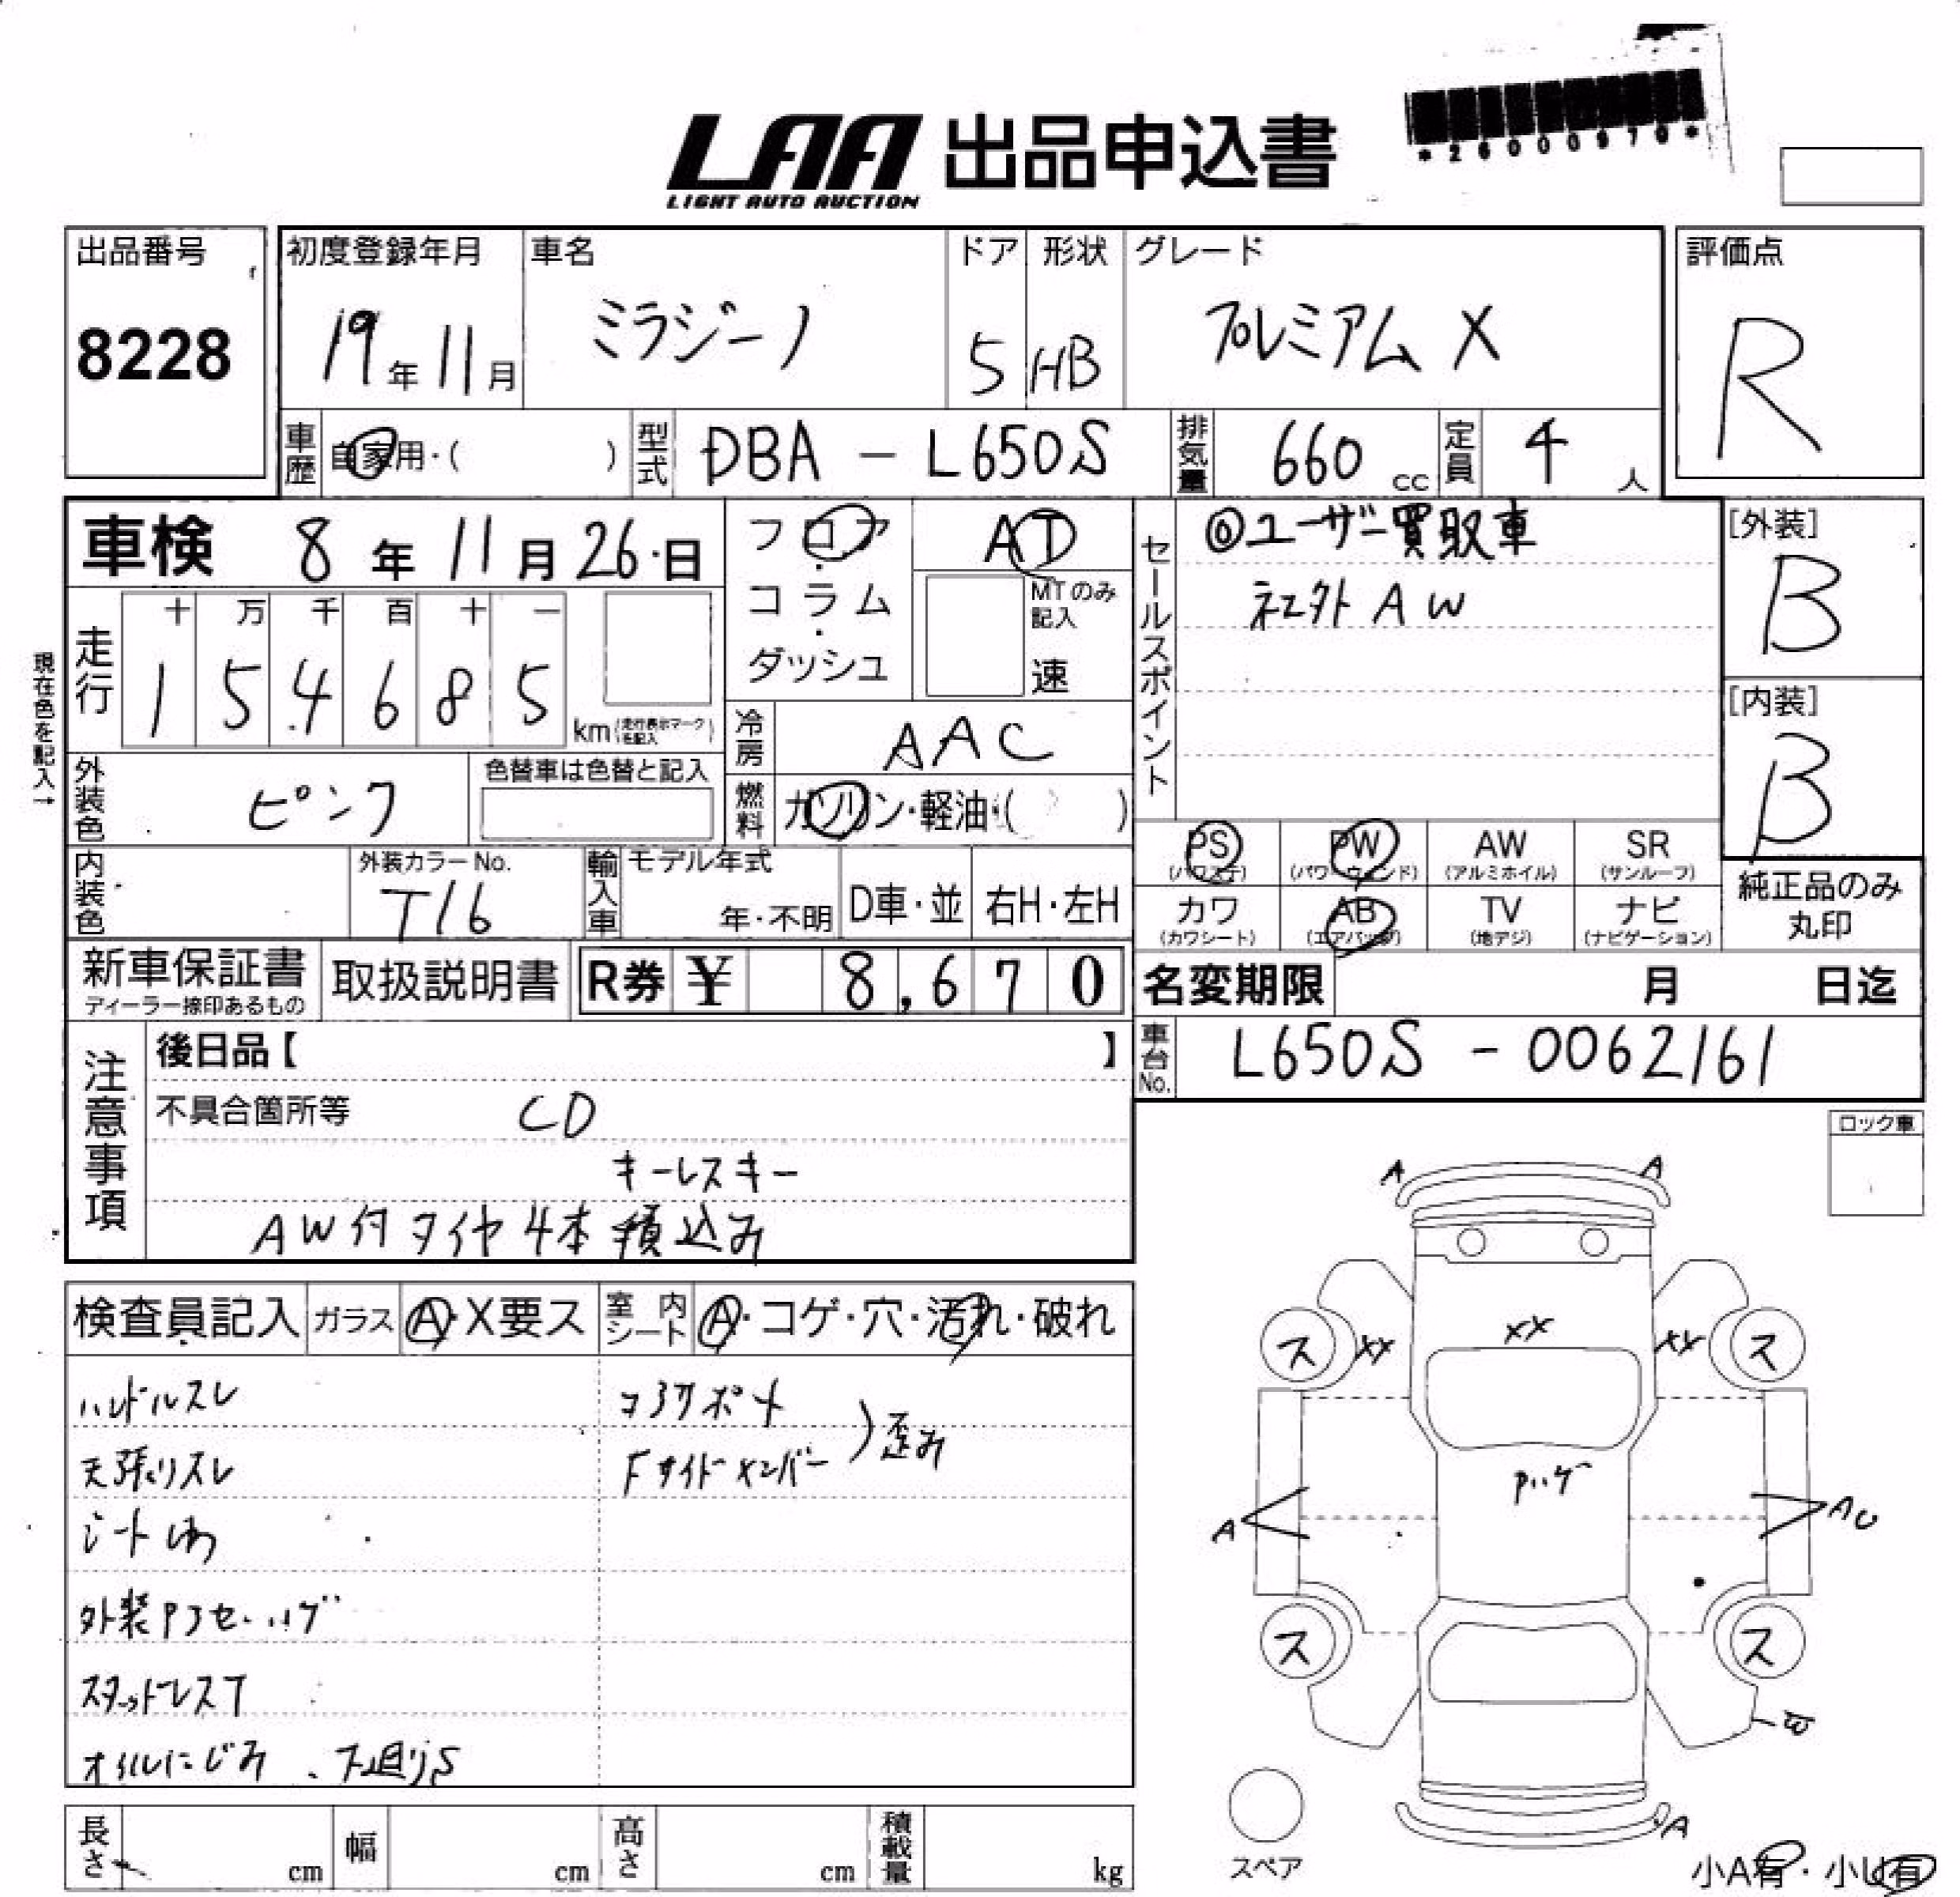 LAA 出品申込書
LIGHT AUTO AUCTION
*26000970*
出品番号
8228
初度登録年月
19年11月
車名
ミラジーノ
ドア
5
形状
HB
グレード
プレミアム X
評価点
R
車歴
自家用・( )
型式
DBA - L650S
排気量
660 cc
定員
4 人
車検 8年 11月 26日
フロア・コラム・ダッシュ
AT
MTのみ記入
速
セールスポイント
◎ユーザー買取車
社外 AW
[外装]
B
[内装]
B
現在色を記入→
走行
十 万 千 百 十 一
1 5 4 6 8 5
km (走行表示マークを記入)
冷房
AAC
外装色
ピンク
色替車は色替と記入
燃料
ガソリン・軽油・( )
PS (パワステ)
PW (パワーウィンド)
AW (アルミホイル)
SR (サンルーフ)
カワ (カワシート)
AB (エアバッグ)
TV (地デジ)
ナビ (ナビゲーション)
純正品のみ丸印
内装色
外装カラーNo.
T16
輸入車
モデル年式
年・不明
D車・並
右H・左H
新車保証書
ディーラー捺印あるもの
取扱説明書
R券 ¥ 8,670
名変期限 月 日迄
車台No.
L650S - 0062161
注意事項
後日品【 】
不具合箇所等 CD
キーレスキー
AW付タイヤ4本積込み
ロック車
検査員記入
ガラス
A・X要ス
室内シート
A・コゲ・穴・汚れ・破れ
ハンドルスレ
天張りスレ
シートしわ
スタッドレスT
オイルにじみ、下廻りS
コアサポート
Fサイドメンバー
歪み
A
A
ス
XX
XX
XX
ス
Pハゲ
A
AU
ス
ス
A
スペア
小A有・小U有
長さ cm
幅 cm
高さ cm
積載量 kg